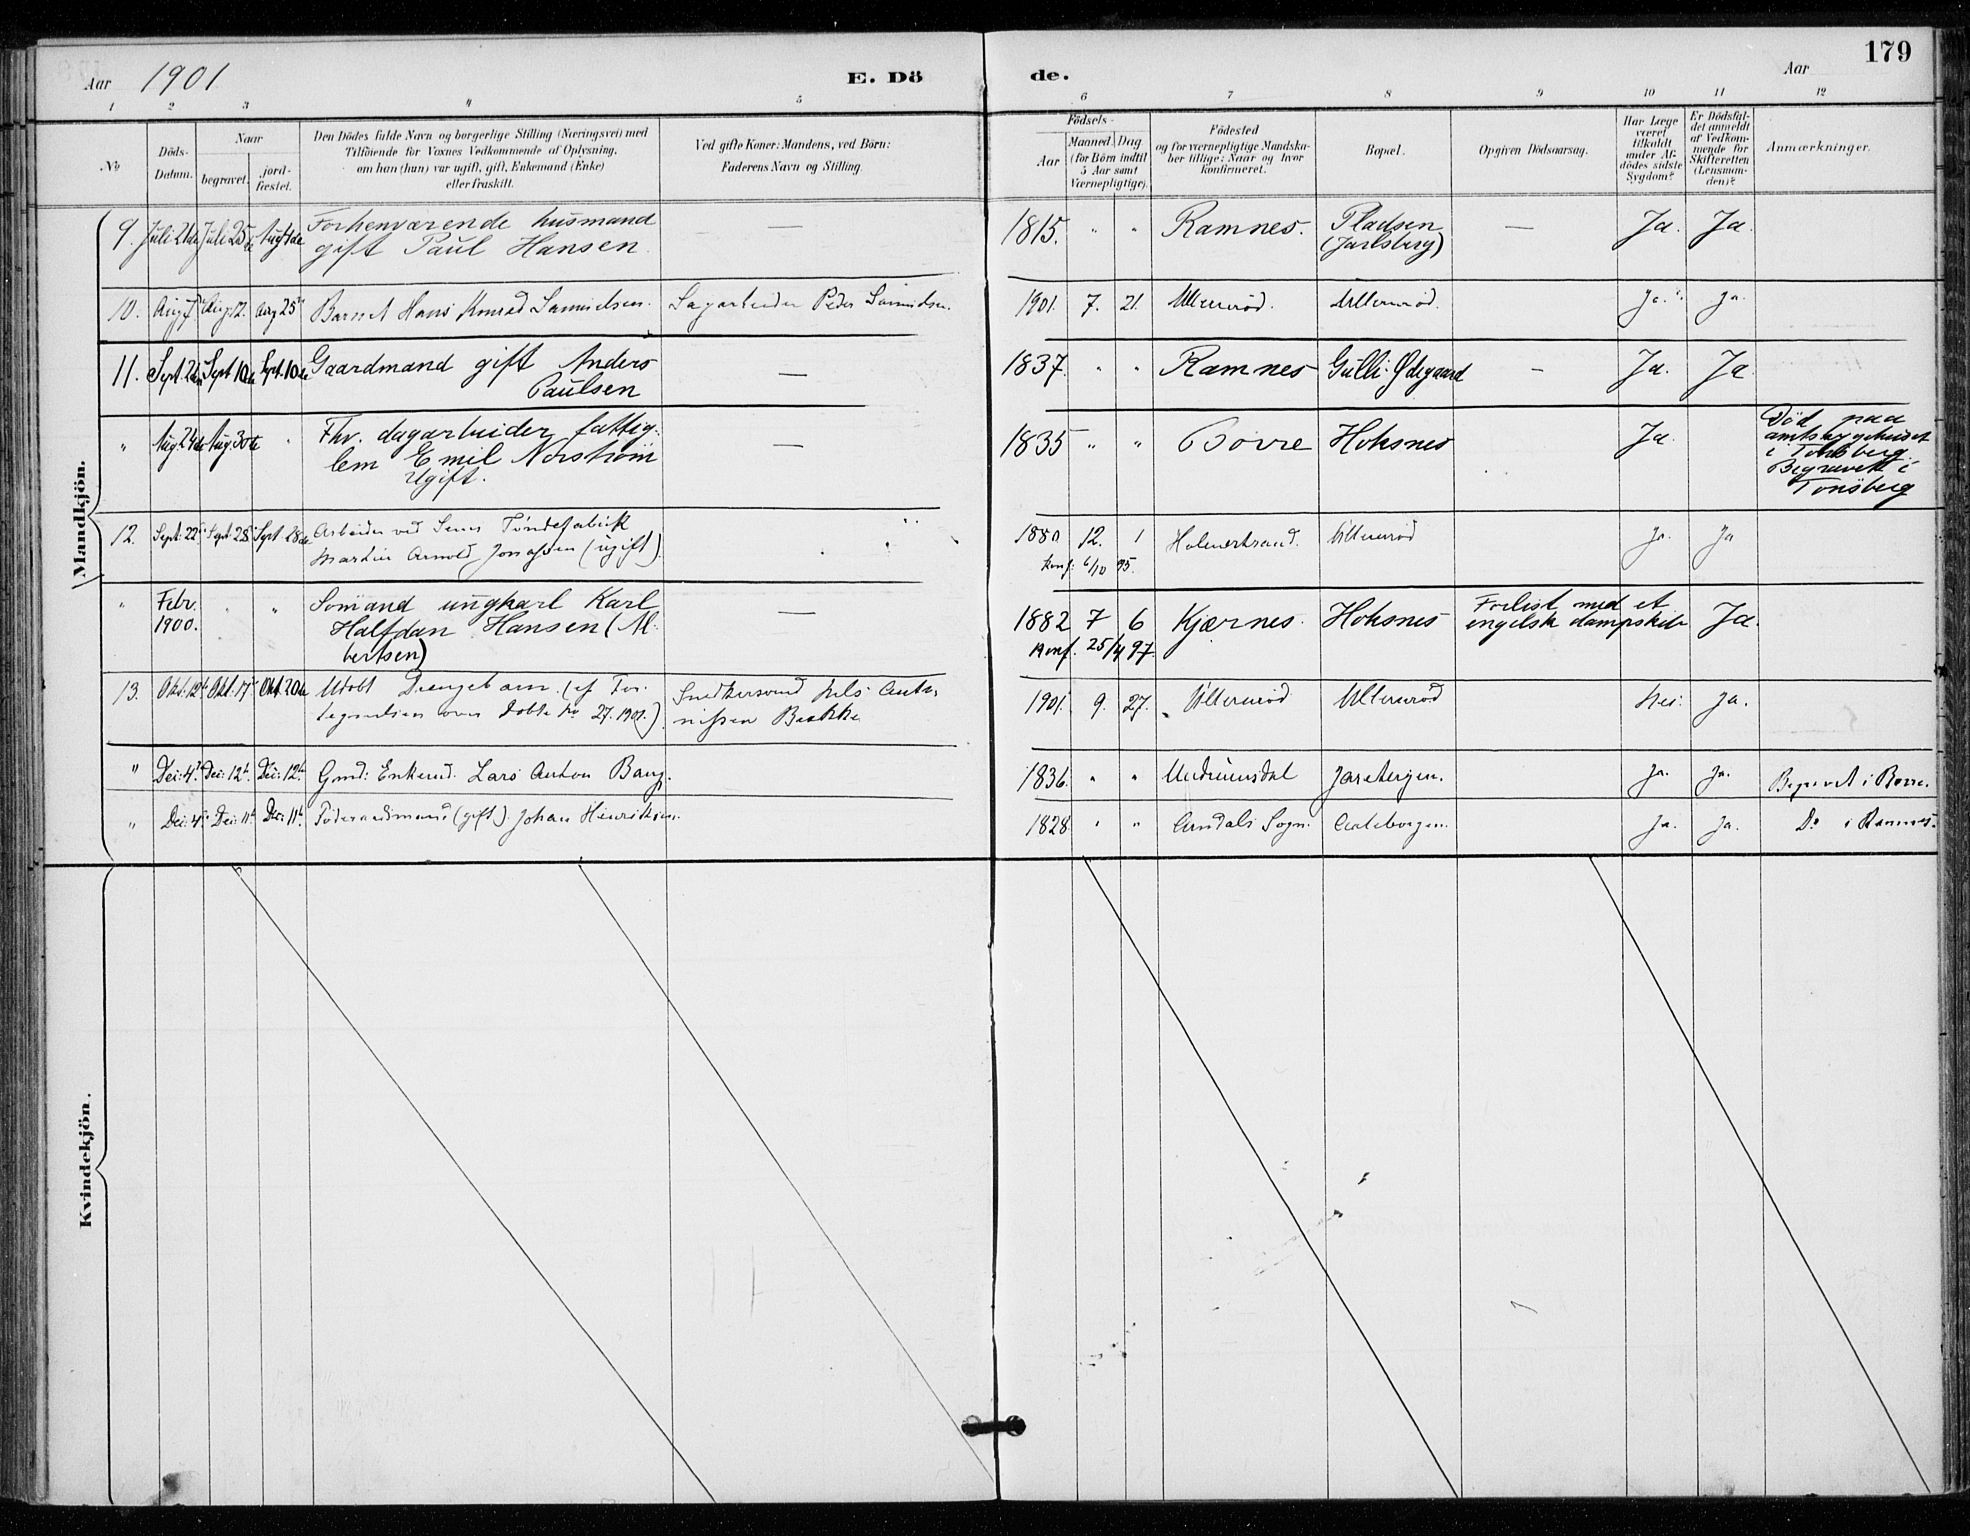 179
Aar 1901 E. Dö de. Aar
1 2 3 4 5 6 7 8 9 10 11 12
No
Döds-Datum.
Naar
begravet. jordfæstet.
Den Dödes fulde Navn og borgerlige Stilling (Næringsvei) med
Tilföiende for Voxnes Vedkommende af Oplysning,
om han (hun) var ugift, gift, Enkemand (Enke)
eller fraskilt.
Ved gifte Koner: Mandens, ved Börn:
Faderens Navn og Stilling.
Födsels-
Aar Maaned. Dag
(for Börn indtil
5 Aar samt
Værnepligtige).
Födested
og for værnepligtige Mandskaber tillige: Naar og hvor
konfirmeret.
Bopæl.
Opgiven Dödsaarsag.
Har Læge
været
tilkaldt
under Afdödes sidste
Sygdom?
Er Dödsfaldet anmeldt
af Vedkommende for
Skifteretten
(Lensmanden)?
Anmærkninger.
Mandkjön.
9. Juli 21de Juli 25 Aug 4de Forhenværende husmand — 1815. " " Ramnes. Pladsen — Ja. Ja.
gift Paul Hansen. (Jarlsberg)
10. Aug 7 Aug. 12. Aug 25 Barnet Hans Konrad Samuelsen. Sagarbeider Peder Samuelsen. 1901. 7. 21. Ullerueröd. Ullerueröd. Ja. Ja.
11. Sept 2den Sept 10de Sept. 10de Gaardmand gift Anders — 1837. " " Ramnes Gulli Ödegaard — Ja. Ja
Paulsen
" Aug 24de Aug. 30te " Fhv. dagarbeider fattig- — 1835 " " Borre Hoksnes Ja. Död paa
lem Emil Norström amtssygehuset
Ugift. i Tønsberg.
Begravet i
Tønsberg
12. Sept: 22 Sept. 28 Sept 28de Arbeider ved Sems Töndefabrik 1880 12. 1 Holmestrand. Ja. Ja
Martin Arnold Jonassen (ugift). Konf: 6/10 95.
" Febr. " " Sömand ungkarl Karl — 1882 7 6 Kjærnes. Hoksnes Forlist med et Ja.
1900. Halfdan Hansen (Al- Konf. 25/4 97. engelsk dampskib
bertsen)
13. Okt. Okt. 17 Okt 20de Udöbt Drengebarn. (cf For- Snedkersvend Nils Anto- 1901. 9. 27. Nei. Ja.
tegnelsen over Döbte No 27. 1901.) nissen Bakke
" Dec: 4 Dec: 12 Dec: 12 Gmd: Enkemd. Lars Anton Bang. 1836. " " Undrumsdal Jareteigen. Ja. Ja. Begravet i Borre.
" Dec: 4 Dec: 11 Dec: 11 Föderaadsmand (gift) Johan Henriksen. 1828 " " Sogn. Ja. Ja. Do i Ramnes.
Kvindekjön.